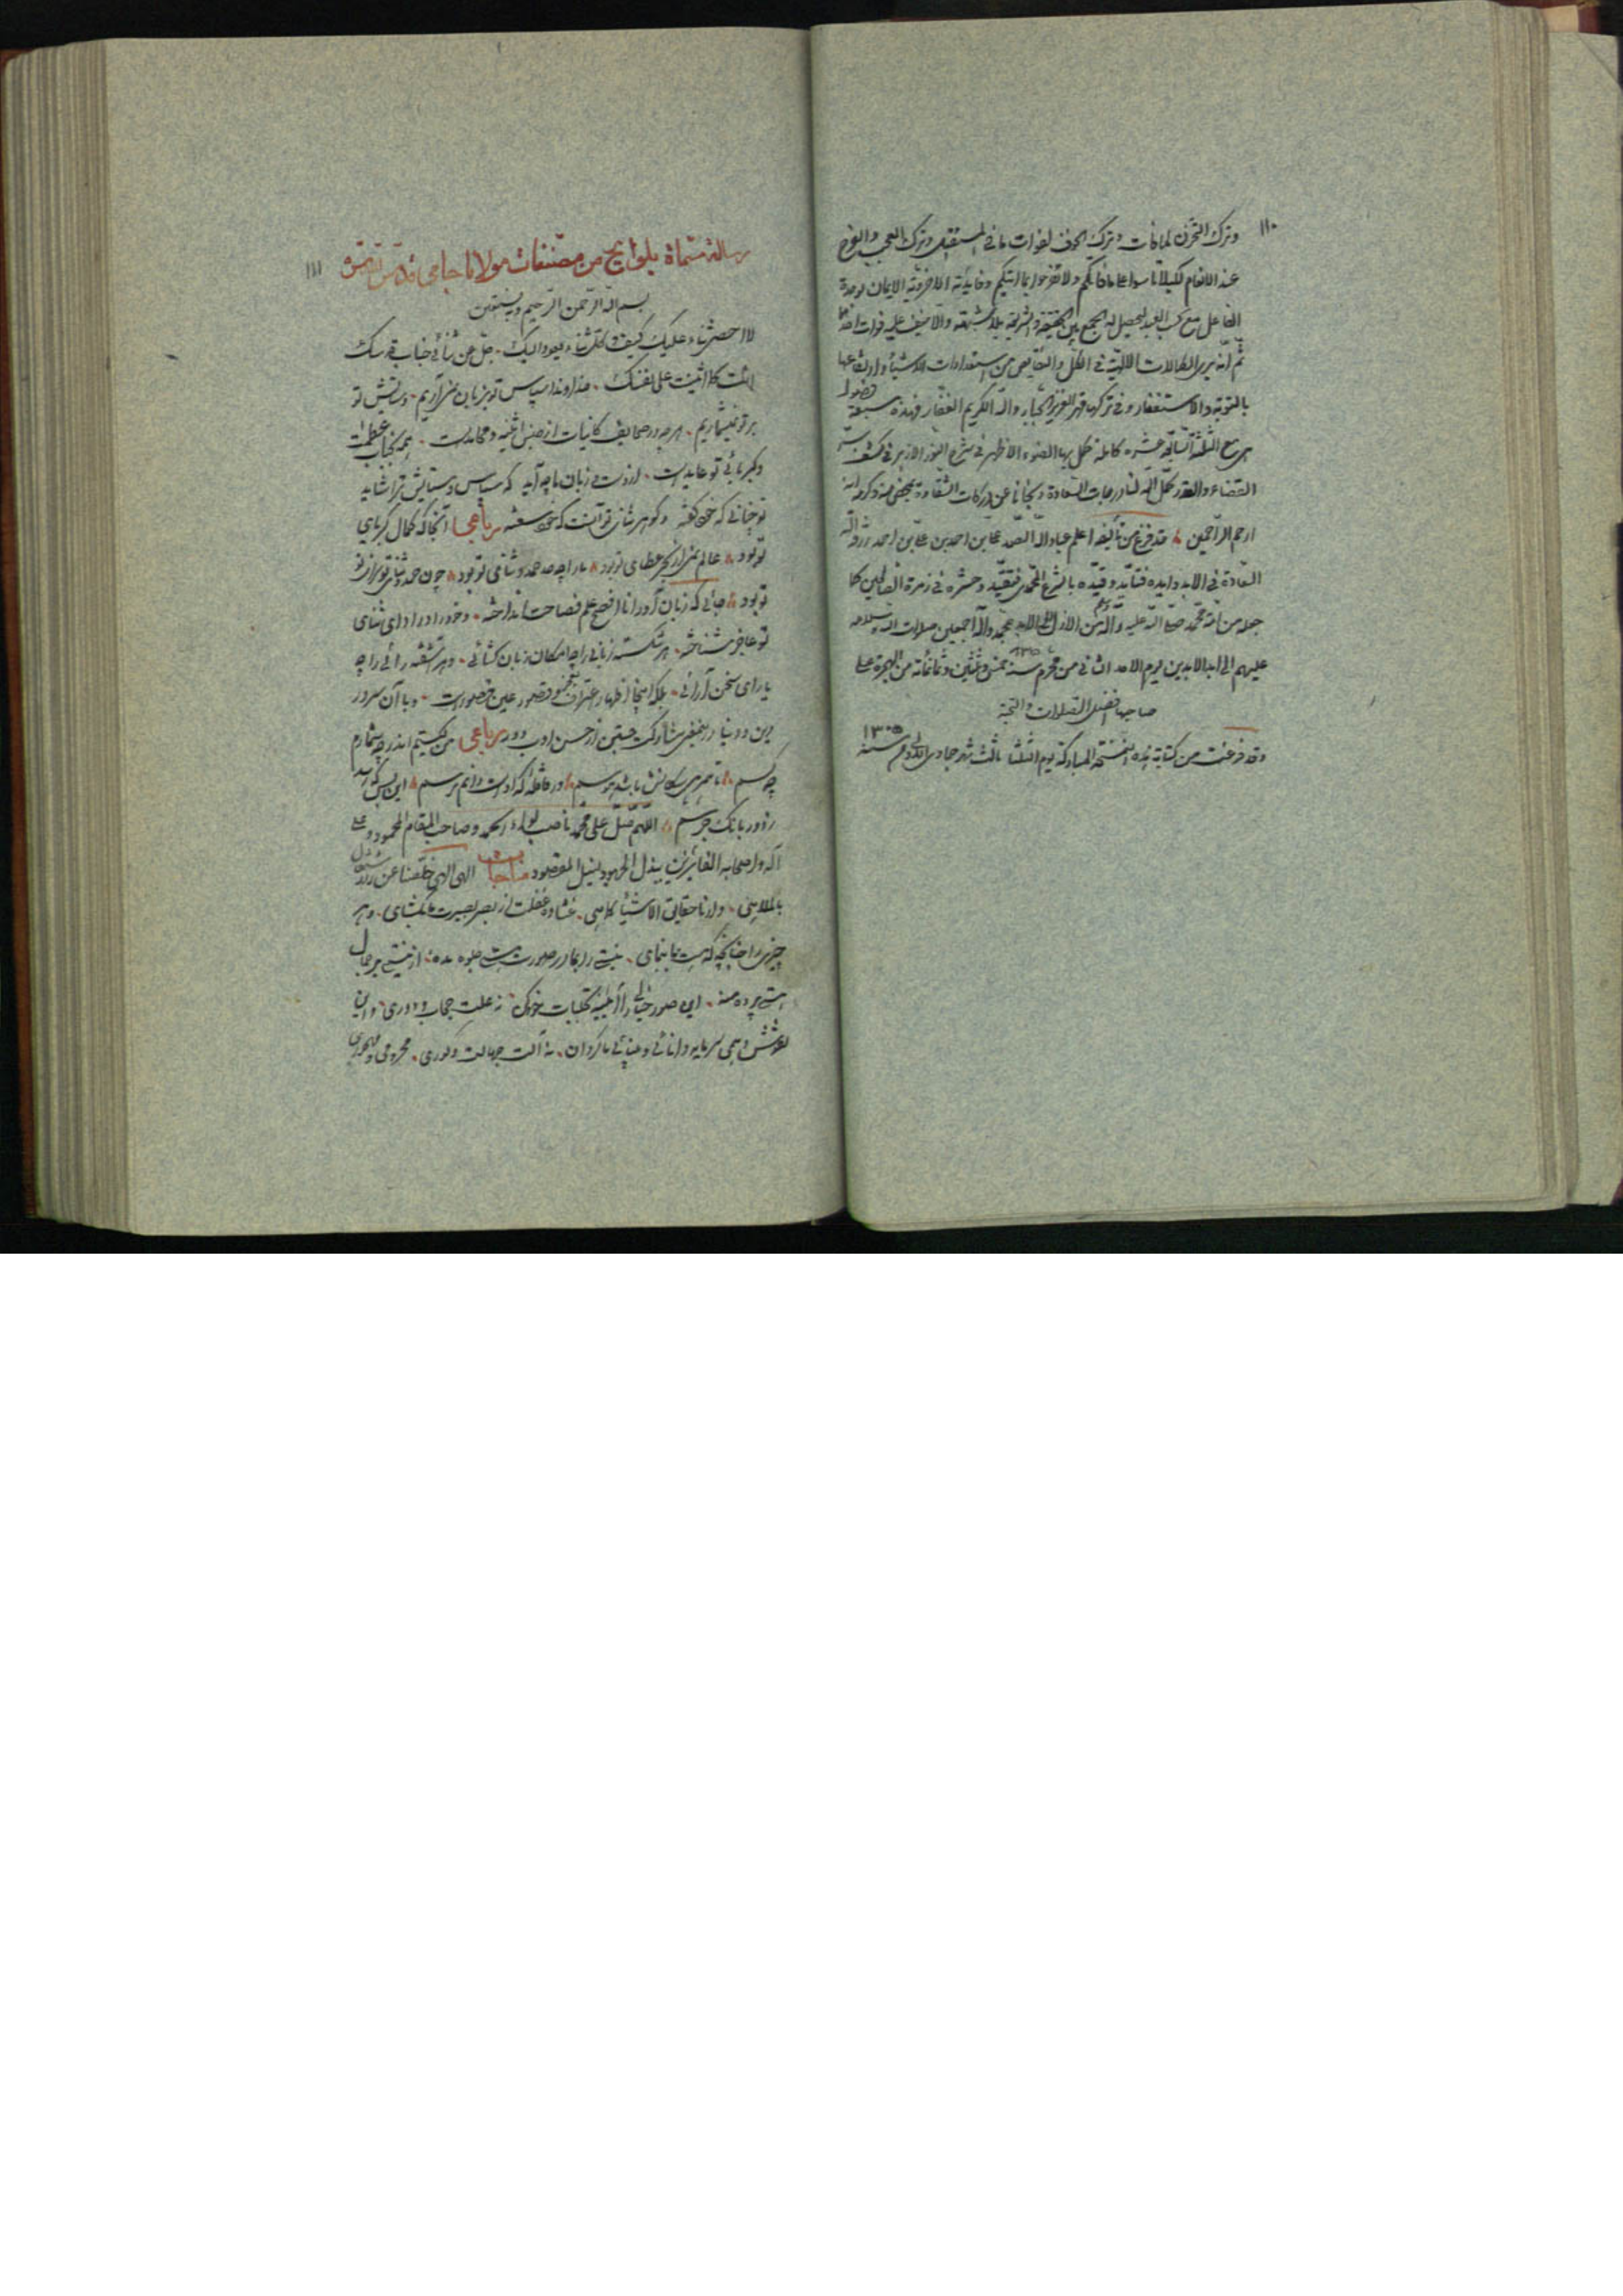 ١١٠
وترك التحزن لما فات وترك الخوف لفوات ما في المستقبل وترك العجب والفرح
عند الانعام لكيلا تأسوا على ما فاتكم ولا تفرحوا بما اتيكم وفايدته الاخروية الايمان بوحدة
الفاعل مع كسب العبد ليحصل له الجمع بين الحقيقة والشريعة بلا شبهة والا خيف عليه فوات احدهما
ثم انه يرى الكمالات اللالهية في الكل والنقايص من استعدادات الاشياء وارتفاعها
بالتوبة والاستغفار وفي تركها قهر العزيز الجبار والله الكريم الغفار فهذه سبعة فصول
هي مع الثلثة السابقة عشرة كاملة كمل بها الضوء الاظهر في شرح النور الازهر في كشف سر
القضاء والقدر كمل الله لنا درجات السعادة ونجانا عن دركات الشقاوة بمحض منه وكرمه انه
ارحم الراحمين قد فرغ من تأليفه اعلم عباد الله الصمد علي بن احمد بن علي بن احمد رزقه الله
السعادة في الابد وايده فتأيد وقيده بالشرع المحمدي فتقيد وحشره في زمرة الصالحين كما
جعله من امة محمد صلى الله عليه وآله وسلم من الازل الى الابد بمحمد وآله اجمعين صلوات الله وسلامه
عليهم الى ابد الابدين يوم الاحد الثاني من محرم سنة خمس وثلثين وثمانمائة من الهجرة على
صاحبها افضل الصلوات والتحية
وقد فرغت من كتابة هذه النسخة المباركة يوم الثلثا ثالث شهر جمادى الاولى سنة ١٣٠٥
١١١
رسالة مسماة بلوايح من مصنفات مولانا جامى قدس سره
بسم الله الرحمن الرحيم وبه نستعين
لا احصى ثناء عليك كيف وكل ثناء يعود اليك جل عن ثنائى جناب قدسك
انت كما اثنيت على نفسك خداوندا سپاس تو بر زبان نمى آريم وستايش تو
بر تو نميشماريم هر چه در صحايف كاينات از جنس اثنيه ومحامدست همه بجناب عظمت
وكبريائى تو عايدست از دست و زبان ما چه آيد كه سپاس وستايش ترا شايد
تو چنانى كه خود گفته وگوهر ثناى تو آنست كه خود سفته رباعيه آنجا كه كمال كبرياى
تو بود عالم نمى از بحر عطاى تو بود ما را چه حد حمد و ثناى تو بود هم حمد و ثناى تو سزاى
تو بود جائى كه زبان آور انا افصح علم فصاحت انداخته وخود را در اداى ثناى
تو عاجز شناخته هر شكسته زبانى را چه امكان زبان كشائى وهر آشفته رائى را چه
ياراى سخن آرائى بلكه اينجا اظهار اعتراف بعجز وقصور عين قصورست وبا آن سرور
دين ودنيا در اينمعنى مشاركت جستن از حسن ادب دور رباعى من كيستم اندر چه شمارم
چه كسم تا همرهى سگانش باشد هوسم در قافله كه اوست دانم نرسم اين بس كه رسد
ز دور بانك جرسم اللهم صل على محمد ناصب لواء الحمد وصاحب المقام المحمود وعلى
آله واصحابه الفائزين ببذل المجهود لنيل المقصود مناجات الهى الهى خلصنا عن الاشتغال
بالملاهى وارنا حقايق الاشياء كما هى غشاوه غفلت از بصر بصيرت ما بگشاى وهر
چيزى را چنانچه كه هست بما بنماى نيستى را بما در صورت هستى جلوه مده از نيستى بر جمال
هستى پرده منه اين صور خيالى را آئينه تجليات خود كن نه علت حجاب ودورى واين
نقوش وهمى سرمايه دانائى وبينائى ما كردان نه آلت جهالت وكورى محرومى ومهجورى